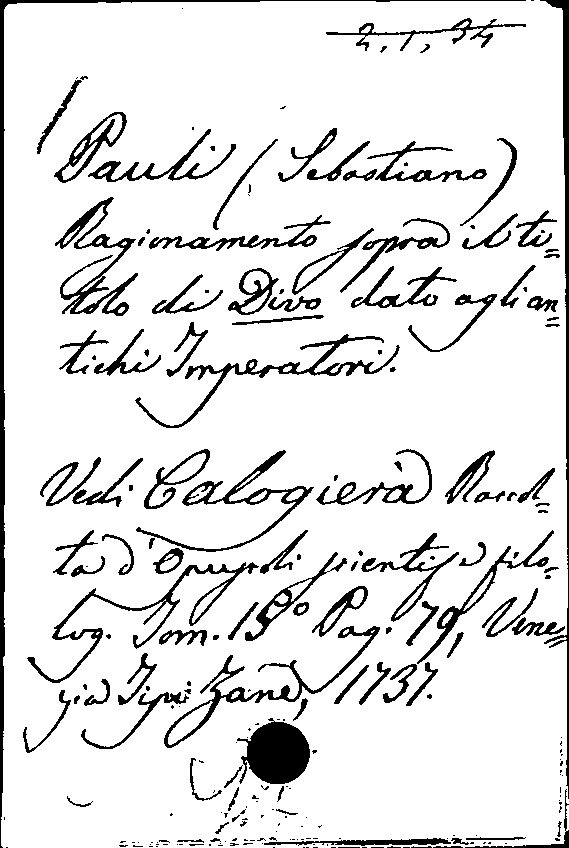 2.1.34
Pauli (Sebastiano)
Ragionamento sopra il ti=
tolo di Divo dato agli an=
tichi Imperatori.
Vedi Calogierà Raccol=
ta d'Opuscoli scientif e filo=
log. Tom. 15° Pag. 79, Vene=
zia Tipi Zane, 1737.